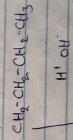 CH₂-CH₂-CH₂-CH₃
H⁺ OH⁻